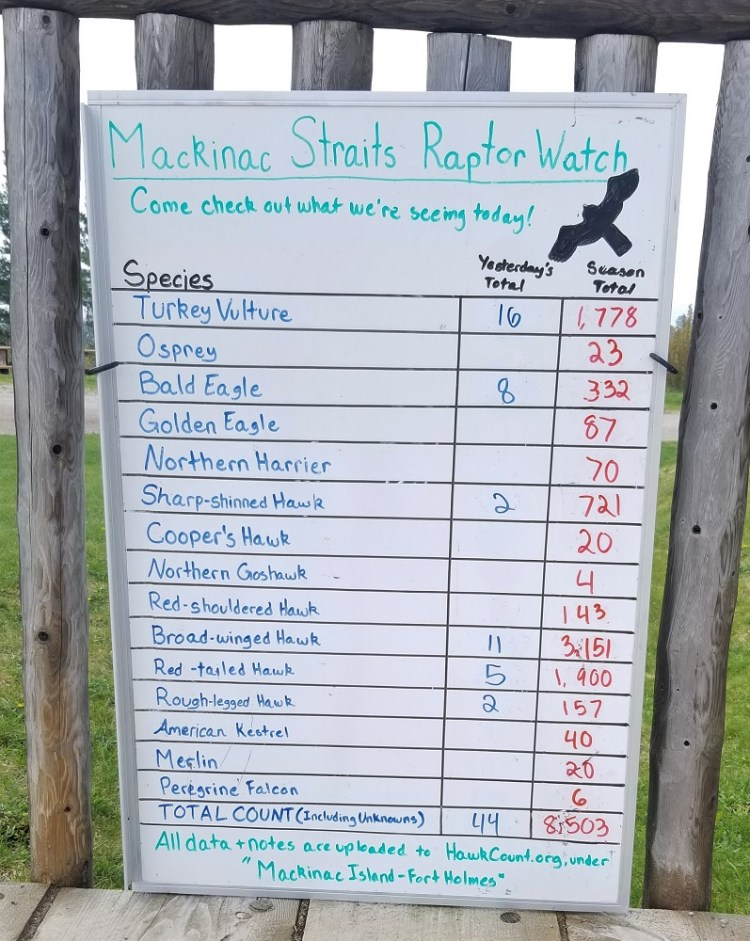 Mackinac Straits Raptor Watch
Come check out what we're seeing today!
Species Yesterday's Total Season Total
Turkey Vulture 16 1,778
Osprey 23
Bald Eagle 8 332
Golden Eagle 87
Northern Harrier 70
Sharp-shinned Hawk 2 721
Cooper's Hawk 20
Northern Goshawk 4
Red-shouldered Hawk 143
Broad-winged Hawk 11 3,151
Red-tailed Hawk 5 1,900
Rough-legged Hawk 2 157
American Kestrel 40
Merlin
Peregrine Falcon 6
TOTAL COUNT (Including Unknowns) 44 8,503
All data + notes are uploaded to HawkCount.org, under
"Mackinac Island-Fort Holmes"